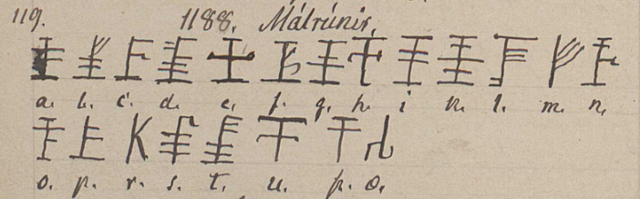 119. 1188. Málrúnir.
a. b. c. d. e. f. g. h. i k. l. m. n.
o. p. r. s. t. u. þ. ö.